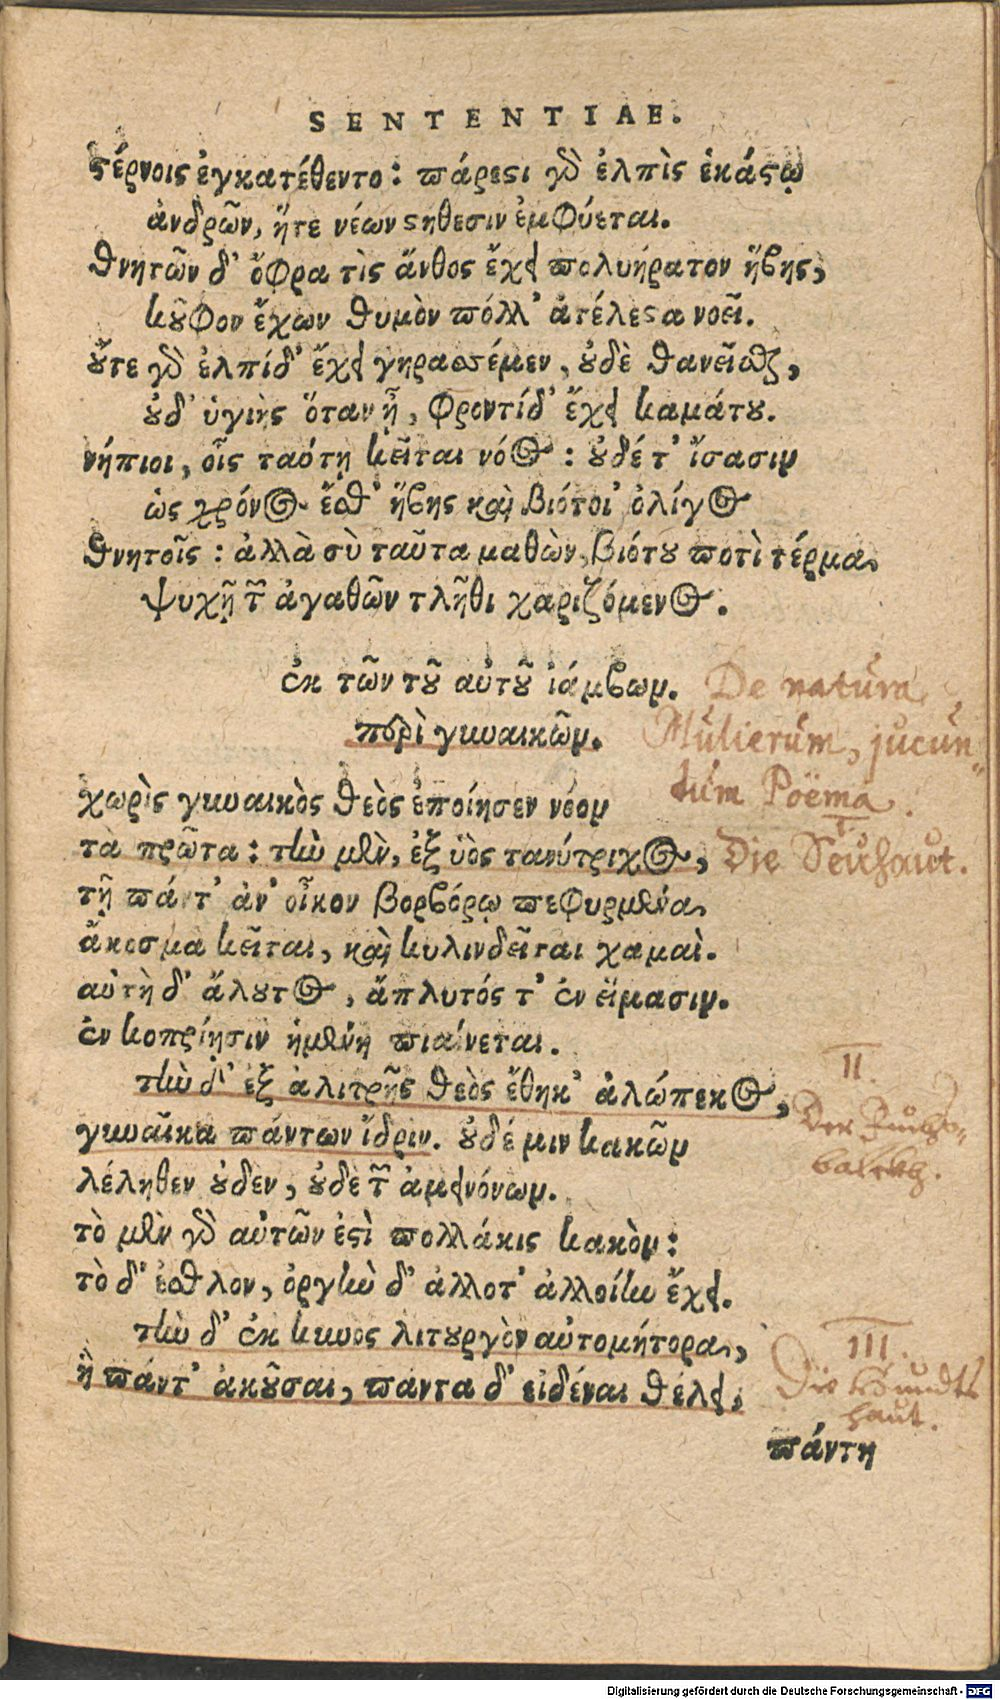 SENTENTIAE.
ϛέρνοις ἐγκατέθεντο: πάρεϛι γὰρ ἐλπὶς ἑκάϛῳ
ἀνδρῶν, ἥτε νέων ϛήθεσιν ἐμφύεται.
θνητῶν δ' ὄφρα τὶς ἄνθος ἔχει πολυήρατον ἥβης,
κοῦφον ἔχων θυμὸν πόλλ' ἀτέλεϛα νοεῖ.
οὔτε γὰρ ἐλπίδ' ἔχει γηρασέμεν, οὐδὲ θανεῖσθαι,
οὐδ' ὑγιὴς ὅταν ᾖ, φροντίδ' ἔχει καμάτου.
νήπιοι, οἷς ταύτῃ κεῖται νόος: οὐδέ τ' ἴσασιν
ὡς χρόνος ἔσθ' ἥβης καὶ βιότοι' ὀλίγος
θνητοῖς: ἀλλὰ σὺ ταῦτα μαθὼν, βιότου ποτὶ τέρμα
ψυχῇ τῶν ἀγαθῶν τλῆθι χαριζόμενος.
ἐκ τῶν τοῦ αὐτοῦ ἰάμβων.
περὶ γυναικῶν.
De natura
Mulierum, jucun-
dum Poëma.
χωρὶς γυναικὸς θεὸς ἐποίησεν νόον
τὰ πρῶτα: τὴν μὲν, ἐξ ὑὸς τανύτριχος,
I
Die Seuhaut.
τῇ πάντ' ἀν' οἶκον βορβόρῳ πεφυρμένα
ἄκοσμα κεῖται, καὶ κυλινδεῖται χαμαὶ.
αὐτὴ δ' ἄλουτος, ἄπλυτός τ' ἐν εἵμασιν.
ἐν κοπρίησιν ἡμένη πιαίνεται.
τὴν δ' ἐξ ἀλιτρῆς θεὸς ἔθηκ' ἀλώπεκος,
II.
γυναῖκα πάντων ἴδριν. οὐδέ μιν κακῶν
λέληθεν οὐδεν, οὐδε τῶν ἀμεινόνων.
τὸ μὲν γὰρ αὐτῶν ἐϛὶ πολλάκις κακὸν:
τὸ δ' ἐσθλον, ὀργὴν δ' ἀλλοτ' ἀλλοίην ἔχει.
τὴν δ' ἐκ κυνος λιτουργὸν αὐτομήτορα,
ἣ πάντ' ἀκοῦσαι, πάντα δ' εἰδέναι θέλει,
III.
Die Hundts
haut.
πάντη
Digitalisierung gefördert durch die Deutsche Forschungsgemeinschaft - DFG